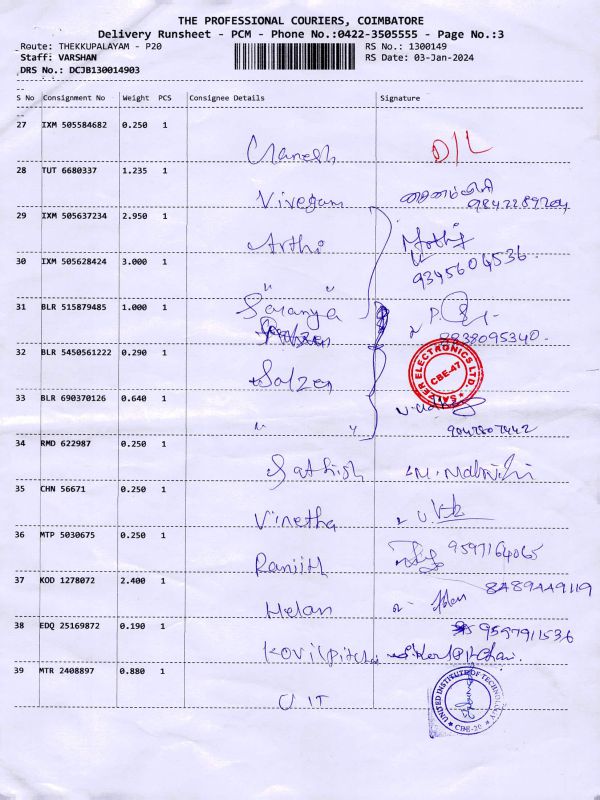 THE PROFESSIONAL COURIERS, COIMBATORE
Delivery Runsheet - PCM - Phone No.:0422-3505555 - Page No.:3
Route: THEKKUPALAYAM - P20 RS No.: 1300149
Staff: VARSHAN RS Date: 03-Jan-2024
DRS No.: DCJB130014903
S No Consignment No Weight PCS Consignee Details Signature
27 IXM 505584682 0.250 1 Ganesh D/L
28 TUT 6680337 1.235 1 Vivegam
9842289204
29 IXM 505637234 2.950 1 Arthi
30 IXM 505628424 3.000 1 " "
9345604536
31 BLR 515879485 1.000 1 Saranya
8838095340
32 BLR 5450561222 0.290 1 Salzer SALZER ELECTRONICS LTD. CBE-47
33 BLR 690370126 0.640 1 " "
9047807442
34 RMD 622987 0.250 1 Sathish
35 CHN 56671 0.250 1 Vinetha
36 MTP 5030675 0.250 1 Ranjith 9597164065
37 KOD 1278072 2.400 1 Helan 8489449119
38 EDQ 25169872 0.190 1 Kovilpitchai 9597911536
39 MTR 2408897 0.880 1 UIT UNITED INSTITUTE OF TECHNOLOGY CBE-20